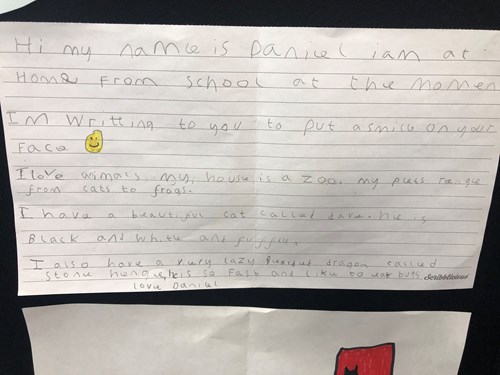 Hi my name is Daniel iam at
Home From School at the Momen
I'M Writting to you to put a smile on your
Face
I love animals. My house is a zoo. my pets range
from cats to frogs.
I have a beautiful cat called dave. he is
Black and white and fuffu
I also have a very lazy dragon called
Stone henge, he is so Fast and like to eat bugs
love Daniel
Scribblicious